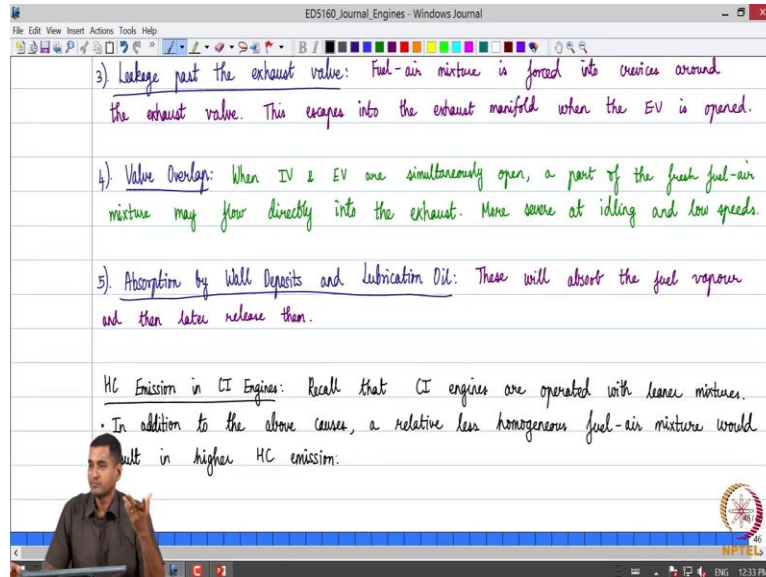 ED5160_Journal_Engines - Windows Journal
File Edit View Insert Actions Tools Help
3). Leakage past the exhaust valve: Fuel-air mixture is forced into crevices around
the exhaust valve. This escapes into the exhaust manifold when the EV is opened.
4). Valve Overlap: When IV & EV are simultaneously open, a part of the fresh fuel-air
mixture may flow directly into the exhaust. More severe at idling and low speeds.
5). Absorption by Wall Deposits and Lubrication Oil: These will absorb the fuel vapour
and then later release them.
HC Emission in CI Engines: Recall that CI engines are operated with leaner mixtures.
• In addition to the above causes, a relative less homogeneous fuel-air mixture would
in higher HC emission.
46
NPTEL
ENG 12:33 PM